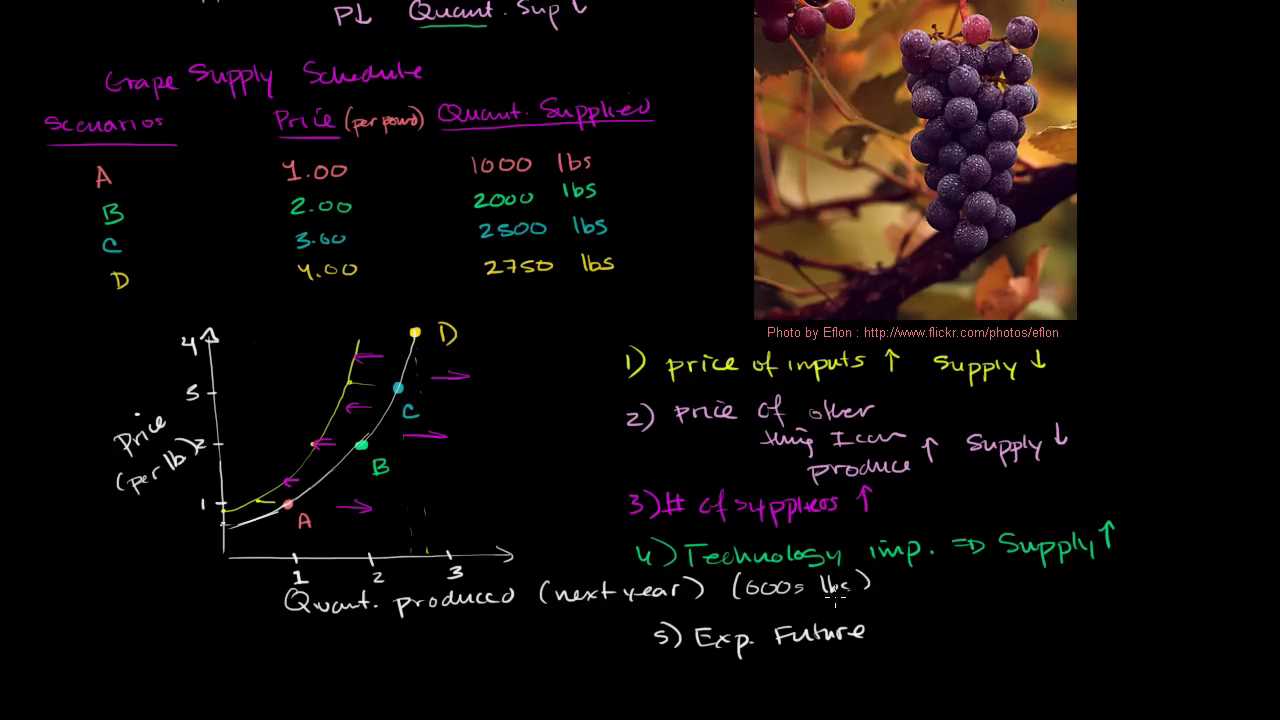 P↓ Quant. Sup ↓
Grape Supply Schedule
Scenarios Price (per pound) Quant. Supplied
A 1.00 1000 lbs
B 2.00 2000 lbs
C 3.00 2500 lbs
D 4.00 2750 lbs
Photo by Eflon : http://www.flickr.com/photos/eflon
4
3
2
1
Price
(per lb)
D
C
B
A
1 2 3
Quant. produced (next year) (000s lbs)
1) price of inputs ↑ Supply ↓
2) price of other
thing I can
produce ↑ Supply ↓
3) # of suppliers ↑
4) Technology imp. => Supply ↑
5) Exp. Future